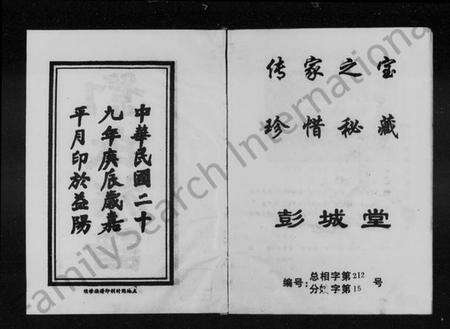 传家之宝
珍惜秘藏
彭城堂
编号：总相字第212号
分字第15
中華民國二十
九年庚辰歲嘉
平月印於益陽
FamilySearch International